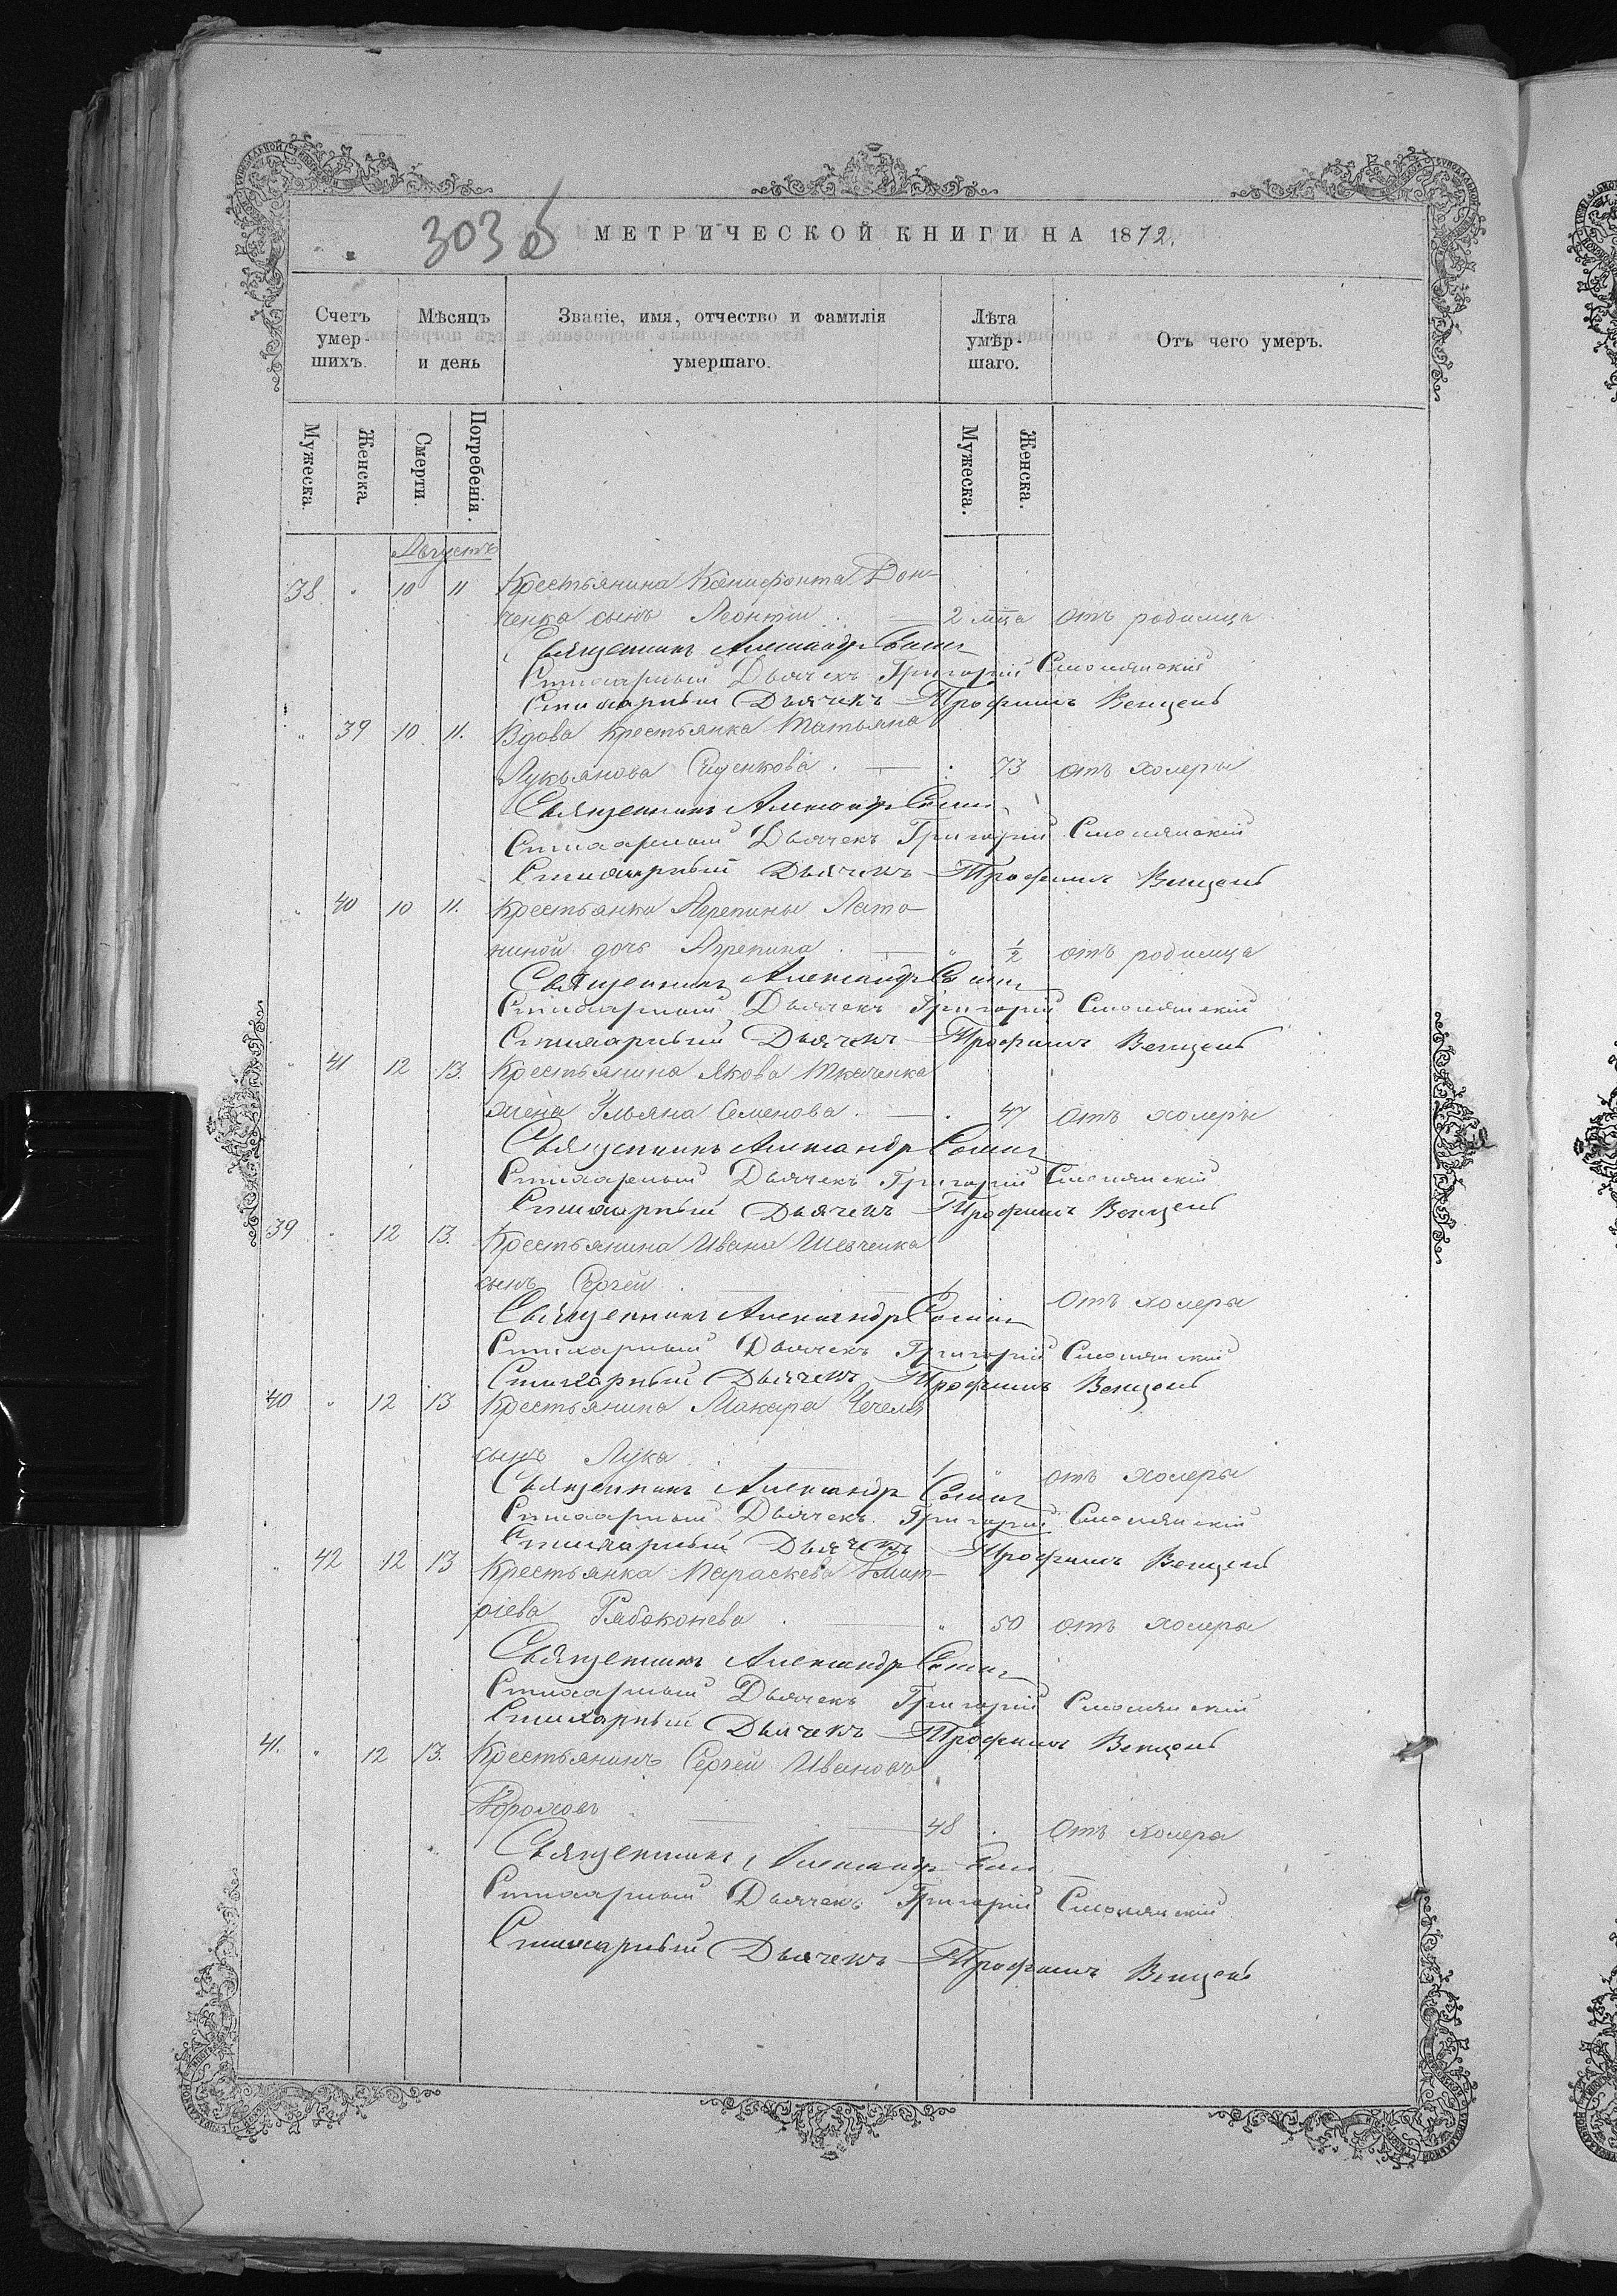 303 об МЕТРИЧЕСКОЙ КНИГИ НА 1872.
Счетъ умер-шихъ. Мѣсяцъ и день Званіе, имя, отчество и фамилія умершаго. Лѣта умѣр-шаго. Отъ чего умеръ.
Мужеска. Женска. Смерти. Погребенія. Мужеска. Женска.
Августъ
38 " 10 11 Крестьянина Ксенифонта Дон-
ченка сынъ Леонтій . — 2 мца отъ родимца
Священникъ Александръ
Стихарный Дьячекъ Григорій Смолянскій
Стихарный Дьячекъ Трофимъ Венцевъ
" 39 10 11. Вдова Крестьянка Татьяна
Лукьянова . — . 73 отъ холеры
Священникъ Александръ
Стихарный Дьячекъ Григорій Смолянскій
Стихарный Дьячекъ Трофимъ Венцевъ
" 40 10 11. Крестьянки Агрепины Лато-
ниной дочь Агрепина . — " 1/2 отъ родимца
Священникъ Александръ
Стихарный Дьячекъ Григорій Смолянскій
Стихарный Дьячекъ Трофимъ Венцевъ
" 41 12 13. Крестьянина Якова Ткаченка
жена Ульяна Семенова . — . 47 отъ холеры
Священникъ Александръ
Стихарный Дьячекъ Григорій Смолянскій
Стихарный Дьячекъ Трофимъ Венцевъ
39 " 12 13. Крестьянина Ивана Шевченка
сынъ Сергей . — 1 " Отъ холеры
Священникъ Александръ
Стихарный Дьячекъ Григорій Смолянскій
Стихарный Дьячекъ Трофимъ Венцевъ
40 " 12 13 Крестьянина Макара Чечеля
сынъ Лука . — 1 " отъ холеры
Священникъ Александръ
Стихарный Дьячекъ Григорій Смолянскій
Стихарный Дьячекъ Трофимъ Венцевъ
" 42 12 13 Крестьянка Параскева Дмит-
ріева Рябоконева . — " 50 отъ холеры
Священникъ Александръ
Стихарный Дьячекъ Григорій Смолянскій
Стихарный Дьячекъ Трофимъ Венцевъ
41. " 12 13. Крестьянинъ Сергей Ивановъ
— 48 . Отъ холеры
Священникъ Александръ
Стихарный Дьячекъ Григорій Смолянскій
Стихарный Дьячекъ Трофимъ Венцевъ